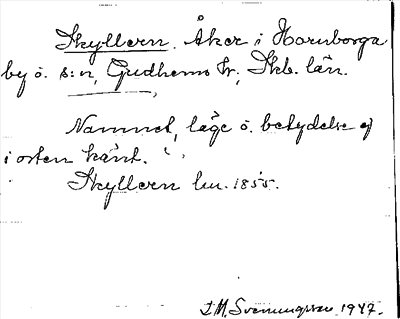 Skyllern. Åker i Hornborga
by o. s:n, Gudhems hr, Skb. län.
Namnet, läge o. betydelse ej
i orten känt.
Skyllern lm. 1855.
J.M. Svenungsson 1947.